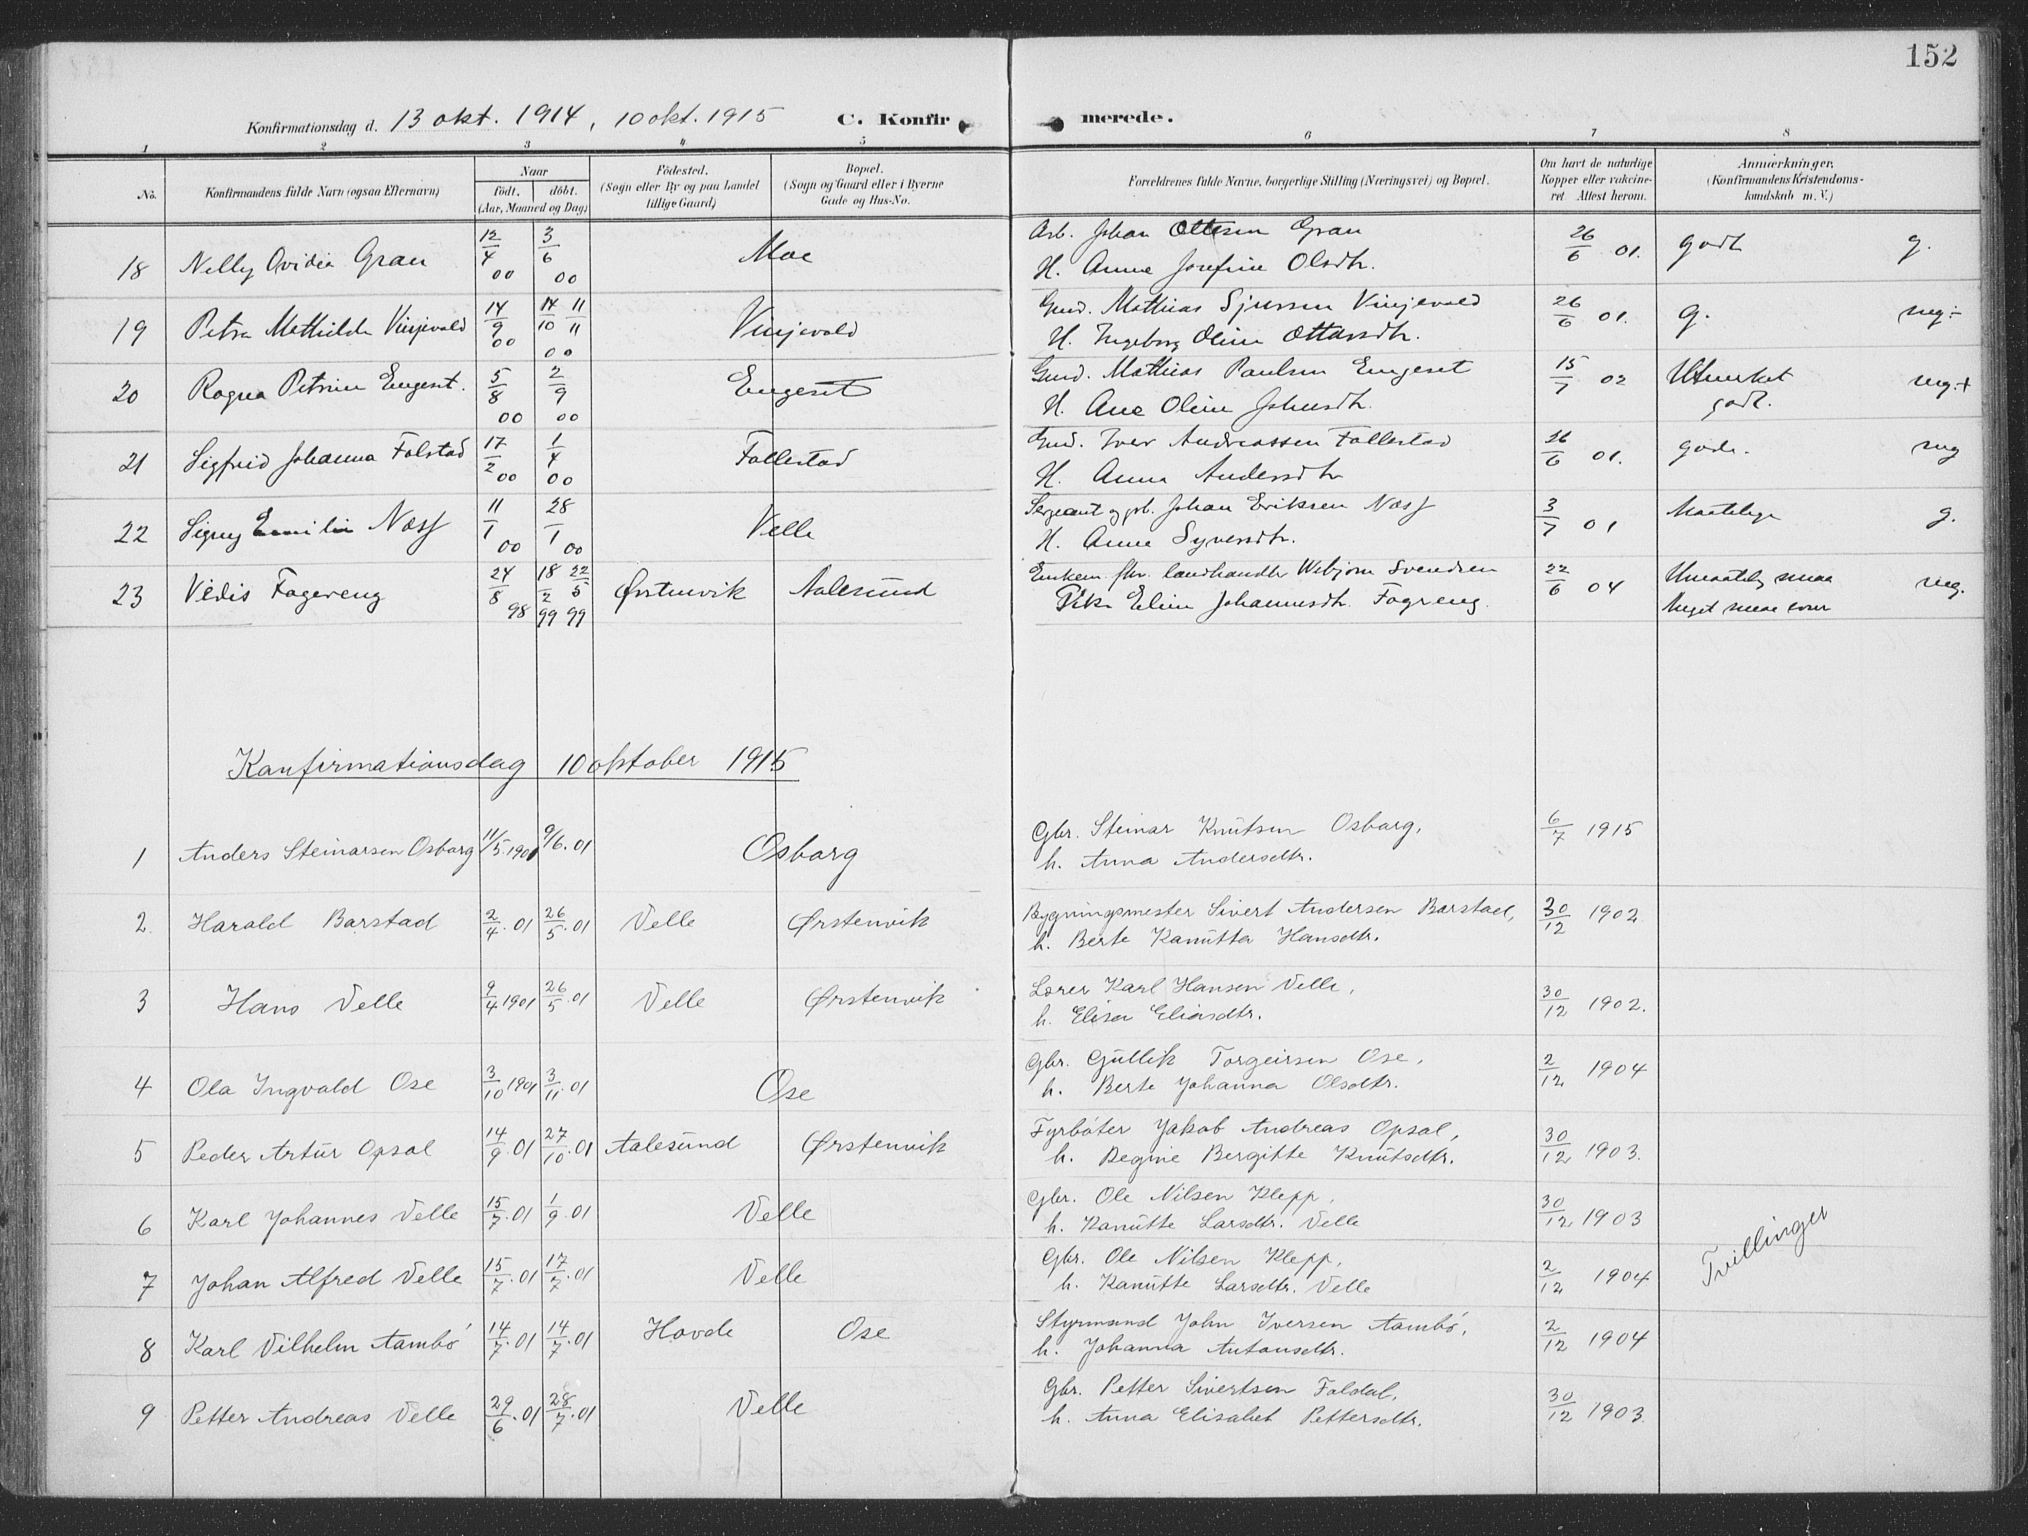 152
Konfirmationsdag d. 13 okt. 1914, 10 okt. 1915 C. Konfirmerede.
1 2 3 4 5 6 7 8
No. Konfirmandens fulde Navn (ogsaa Efternavn) Naar født. døbt. (Aar, Maaned og Dag) Födested. (Sogn eller By og paa Landet tillige Gaard) Bopæl. (Sogn og Gaard eller i Byerne Gade og Hus-No. Forældrenes fulde Navne, borgerlige Stilling (Næringsvei) og Bopæl. Om havt de naturlige Kopper eller vakcineret Attest herom. Anmærkninger. (Konfirmandens Kristendomskundskab m. V.)
18 Nelly Ovidia Gran 12/4 00 3/6 00 Moe Arb. Johan Ottesen Gran 26/6 01. godt g.
H. Anne Josefine Olsdtr.
19 Petra Mathilde Vinjevold 14/9 00 14/10 11/11 00 Vinjevold Gmd. Mathias Sjursen Vinjevold 26/6 01. g. mg÷
H. Ingeborg Oline Ottarsdtr.
20 Ragna Petrine Engeset. 5/8 00 2/9 00 Engeset Gmd. Mathias Paulsen Engeset 15/7 02 Utmerket godt. mg.+
H. Ane Oline Johnsdtr.
21 Sigfrid Johanna Folstad 17/2 00 1/4 00 Follestad Gmd. Iver Andreassen Follestad 26/6 01. godt. mg
H. Anne Andersdtr
22 Signy Emilie Næss 11/1 00 28/1 00 Velle Sergeant og gb. Johan Eriksen Næss 3/7 01 Maatelig g.
H. Anne Syversdtr.
23 Vedis Fagereng 24/8 98 18/2 99 22/5 99 Ørstenvik Aalesund Enkem. fhv. landhandler Webjørn Svendsen 22/6 04 mg.
Pike Eline Johannesdtr. Fagreng.
Konfirmationsdag 10 oktober 1915
1 Anders Steinarsen Osborg 11/5. 1901 9/6. 01 Osborg Gbr. Steinar Knutsen Osborg, 6/7 1915
h. Anna Andersdtr.
2. Harald Barstad 2/4. 01 26/5. 01 Velle Ørstenvik Bygningsmester Sivert Andersen Barstad, 30/12 1902.
h. Berte Kanutta Hansdtr.
3 Hans Velle 9/4 1901 26/5. 01 Velle Ørstenvik Lærer Karl Hansen Velle, 30/12 1902.
h. Elisa Eliasdtr.
4 Ola Ingvald Ose 3/10 1901 3/11. 01 Ose Gbr. Gullik Torgeirsen Ose, 2/12 1904
h. Berte Johanna Olsdtr.
5 Peder Artur Opsal 14/9. 01 27/10. 01 Aalesund Ørstenvik Fyrbøter Jakob Andreas Opsal, 30/12 1903.
h. Regine Bergitte Knutsdtr.
6 Karl Johannes Velle 15/7. 01 1/9. 01 Velle Gbr. Ole Nilsen Klepp, 30/12 1903
h. Kanutte Larsdtr. Velle
Tvillinger
7 Johan Alfred Velle 15/7. 01 17/7. 01 Velle Gbr. Ole Nilsen Klepp, 2/12 1904
h. Kanutte Larsdtr. Velle
8 Karl Vilhelm Aambø 14/7. 01 14/7. 01 Hovde Ose Styrmand John Iversen Aambø, 2/12 1904
h. Johanna Antonsdtr.
9 Petter Andreas Velle 29/6. 01 28/7. 01 Velle Gbr. Petter Sivertsen Foldal, 30/12 1903.
h. Anna Elisabet Pettersdtr.